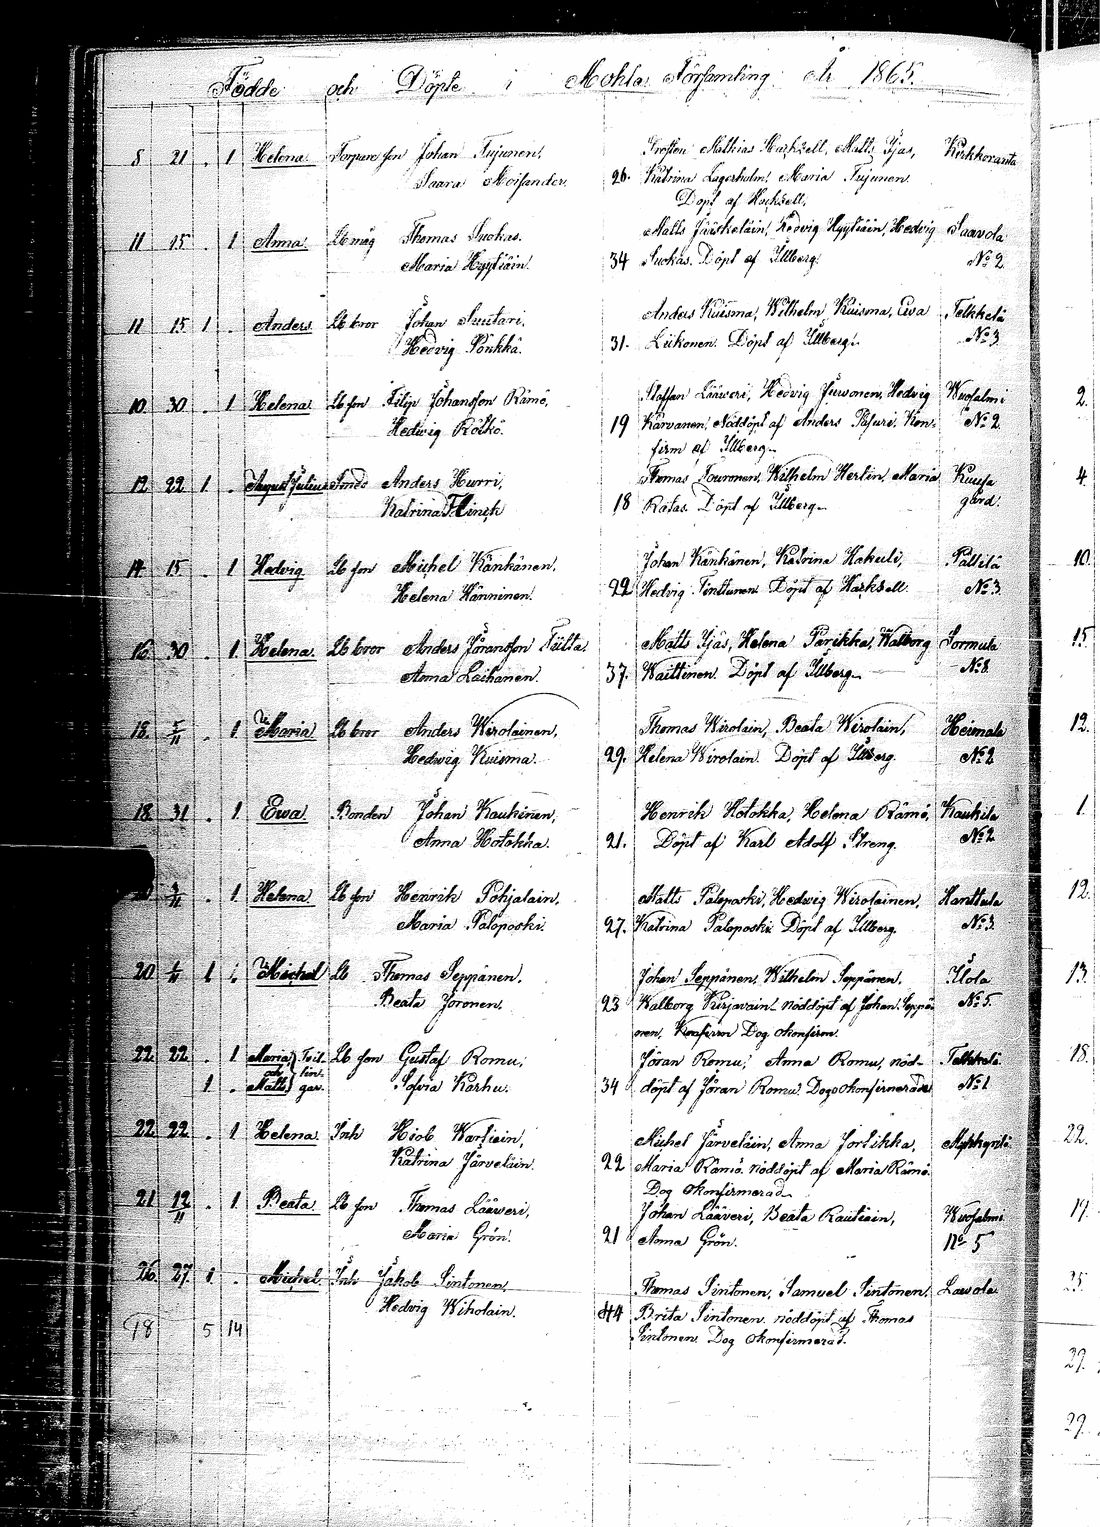 Födde och Döpte i Mohla Församling år 1865.
8 21 . 1 Helena Torpare son Johan Tujunen,
Saara Moisander.
26. Katrina Lagerholm, Maria Tujunen.
Matts Ijas, Kirkkoranta
Döpt af Harksell.
11 15 . 1 Anna Lb måg Thomas Suokas.
Maria Hyytiäin.
Matts Jääskeläin, Hedvig Hyytiäin, Hedvig
34 Suokas. Döpt af Illberg.
No 2
11 15 1 . Anders Lb bror Johan Suutari,
Hedvig Pönkkä.
Anders Kuisma, Wilhelm Kuisma, Ewa Telkkelä
31. Liikonen. Döpt af Illberg. No 3
10 30 . 1 Helena Lb son Filip Johansson Rämö,
Hedwig Rölkö.
Staffan Lääveri, Hedvig Hedvig Wuosalmi
19 Karvanen, Nöddöpt af Anders Kon- No 2
firm af Illberg.
12 22 1 . August Julius Anders Hurri,
Katrina Flinck
Thomas Touronen, Wilhelm Hertin, Maria Kuusa
18 Ratas. Döpt af Illberg gård.
14 15 . 1 Hedvig Lb son Michel Känkänen,
Helena Hänninen.
Johan Känkänen, Katrina Hakuli, Pällilä
22 Hedvig Tinttunen. Döpt af Harksell. No 3.
16 30 . 1 Helena Lb bror Anders Göransson
Anna Leikanen.
Matts Ijäs, Helena Parikka, Walborg Sormula
37. Waittinen. Döpt af Illberg No 8.
18. 5/11 . 1 Maria Lb bror Anders Wirolainen,
Hedwig Kuisma.
Thomas Wirolain, Beata Wirolain, Heimala
29. Helena Wirolain. Döpt af Illberg. No 2
18 31 . 1 Ewa Bonden Johan Kaukinen,
Anna Hotokka.
Henrik Hotokka, Helena Rämö, Kaukila
21. Döpt af Karl Adolf Streng. No 2.
. 1 Helena Lb son Henrik Pohjalain,
Maria Paloposki.
Matts Paloposki, Hedwig Wirolainen, Kanttula
27. Katrina Paloposki Döpt af Illberg. No 3.
20 1 . Michel Lb Thomas Seppänen.
Beata Joronen.
Johan Seppänen, Wilhelm Seppänen. Ilola
23 Walborg Kirjavain. nöddöpt af Johan Seppä- No 5.
nen, Dog okonfirm.
22. 22. . 1 Maria Tvil- Lb son Gustaf Romu,
och lin-
1 . Matts gar. Sofia Karhu.
Jöran Romu, Anna Romu, nöd- Telkkelä
34 döpt af Jöran Romu. Dogo okonfirmerade No 1
22 22 . 1 Helena Inh Hiob Wartiain,
Katrina Järveläin.
Michel Järveläin, Anna Jortikka,
22 Maria Rämö. nöddöpt af Maria Rämö.
Dog okonfirmerad
21 12/11 . 1 Beata Lb son Thomas Lääveri,
Maria Grön.
Johan Lääveri, Beata Rautiain, Wuosalmi
21 Anna Grön. No 5
26 27 1 . Michel Inh Jakob Sintonen,
Hedvig Wiholain.
Thomas Sintonen, Samuel Sintonen,
44 Brita Sintonen. nöddöpt af Thomas
Sintonen. Dog okonfirmerad.
18 5 14
2.
4.
10.
15
12.
1.
12.
13.
18.
22.
19.
25.
29.
29.